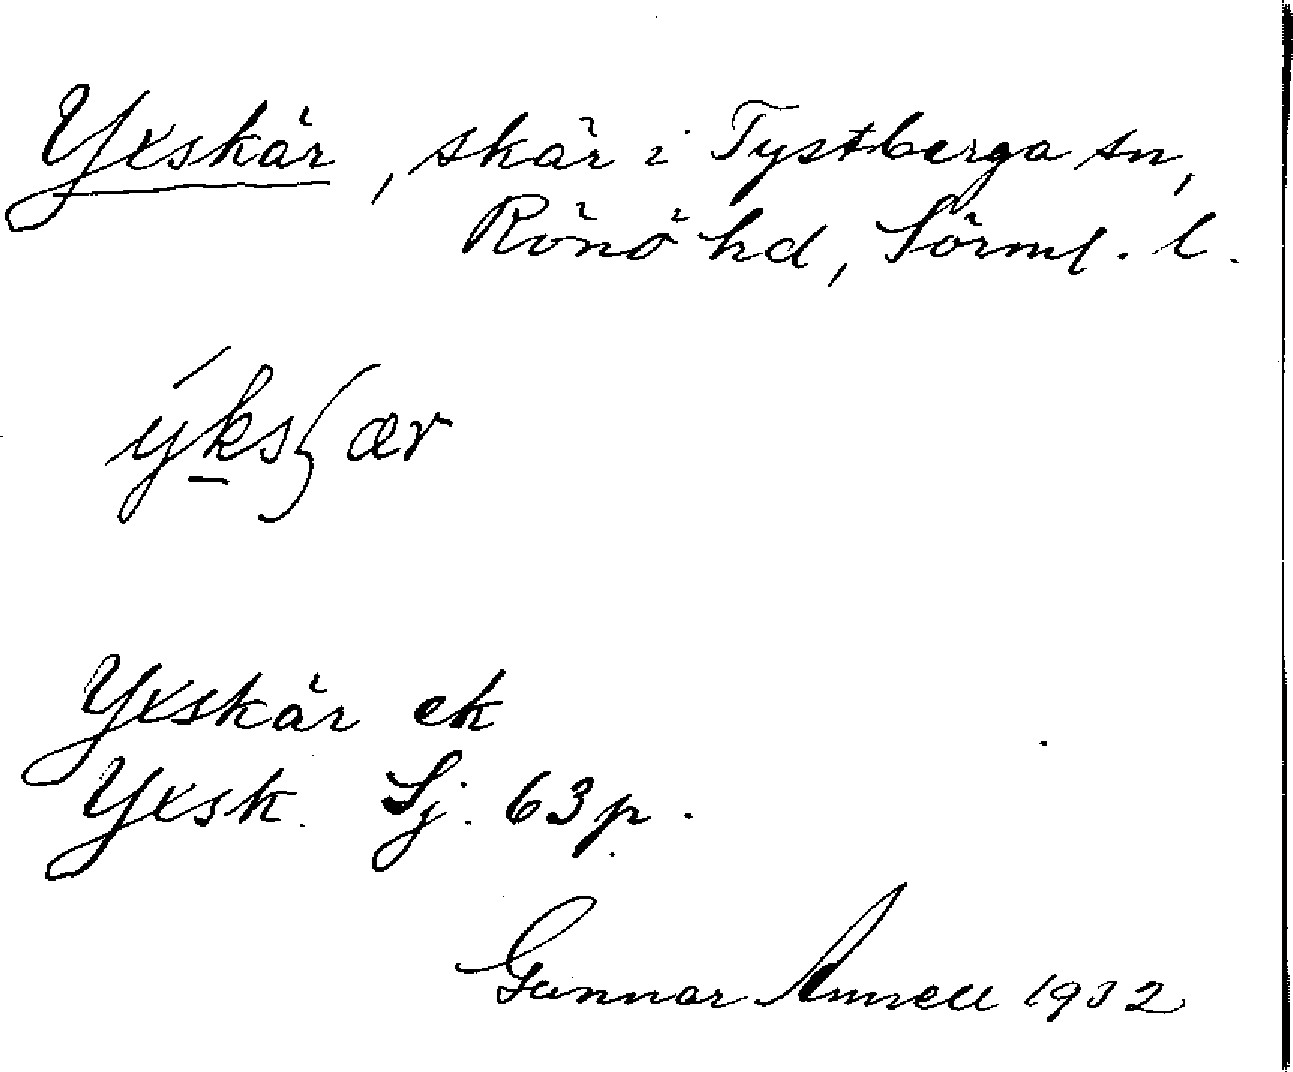 Yxskär, skär i Tystberga sn,
Rönö hd, Sörml. l.
ýksʃær
Yxskär ek
Yxsk. Sj. 63 p.
Gunnar Amrell 1932